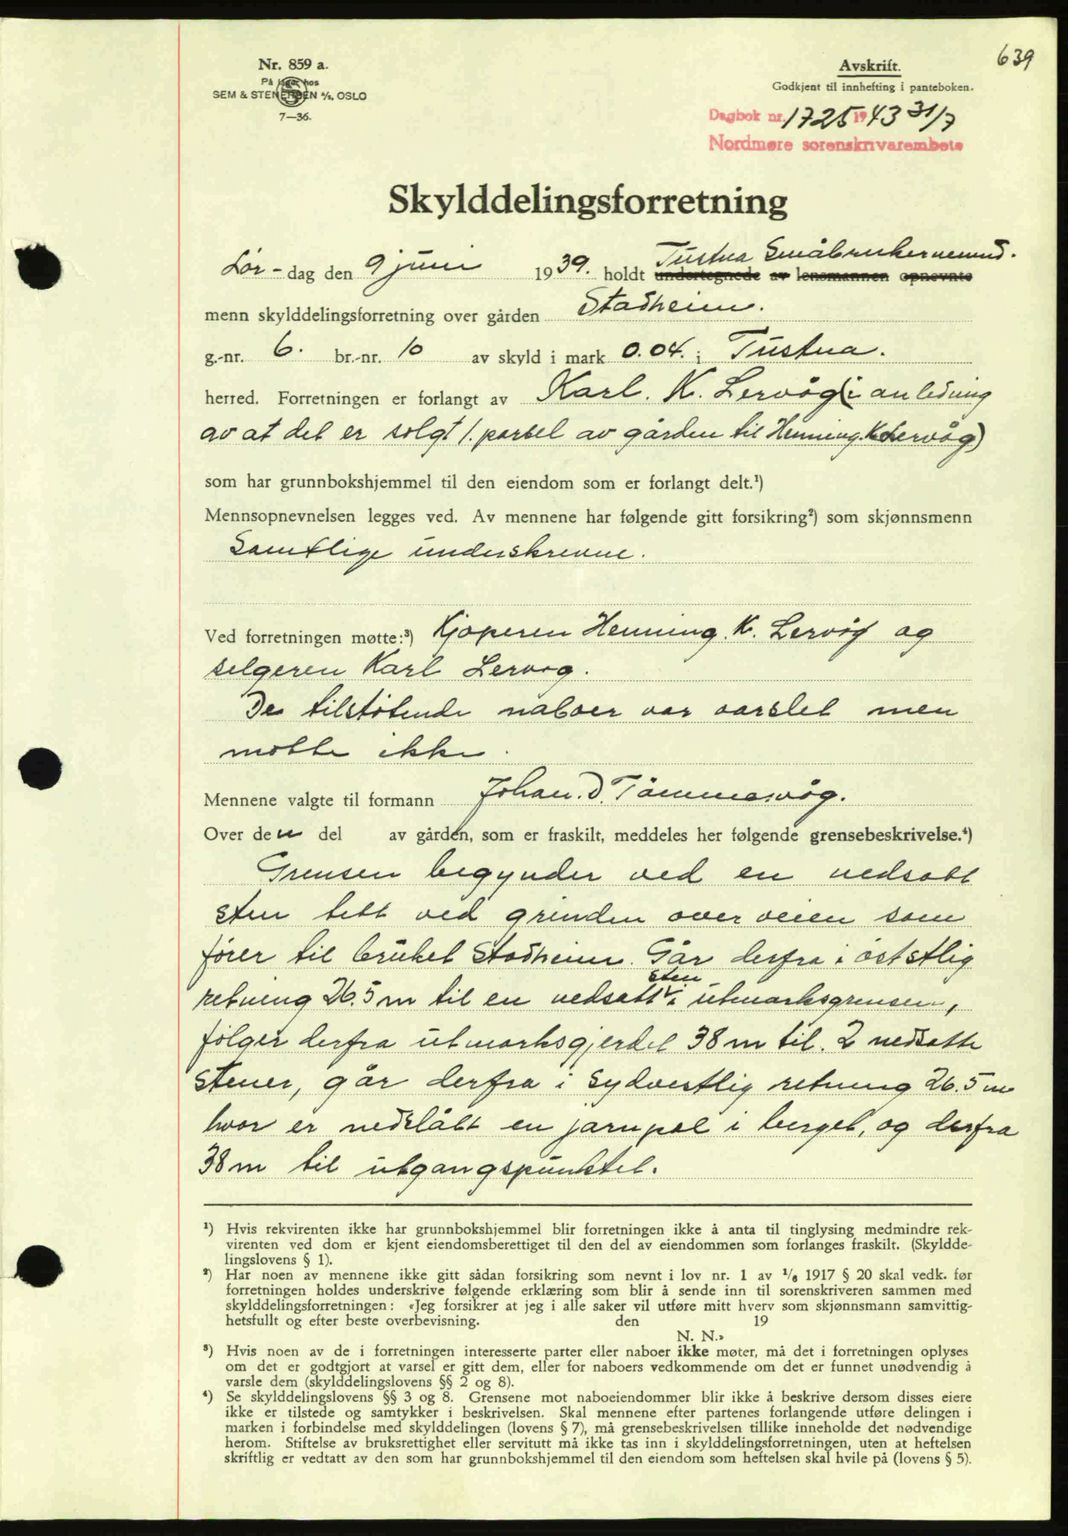 639
Nr. 859 a.
På lager hos
SEM & STENERSEN A/S, OSLO
7—36.
Avskrift.
Godkjent til innhefting i panteboken.
Dagbok nr. 1725 1943 31/7
Nordmøre sorenskrivarembete
Skylddelingsforretning
Lør-dag den 9 juni 1939. holdt Tustna Småbrukernemnd.
undertegnede av lensmannen opnevnte
menn skylddelingsforretning over gården Stadheim.
g.-nr. 6. br.-nr. 10 av skyld i mark 0.04. i Tustna.
herred. Forretningen er forlangt av Karl. K. Lervåg (i anledning
av at det er solgt 1. parsel av gården til Henning. K. Lervåg)
som har grunnbokshjemmel til den eiendom som er forlangt delt.¹)
Mennsopnevnelsen legges ved. Av mennene har følgende gitt forsikring²) som skjønnsmenn
Samtlige underskrevne.
Ved forretningen møtte:³) Kjøperen Henning. K. Lervåg og
selgeren Karl Lervåg.
De tilstøtende naboer var varslet men
møtte ikke.
Mennene valgte til formann Johan. D. Tømmervåg.
Over den del av gården, som er fraskilt, meddeles her følgende grensebeskrivelse.⁴)
Grensen begynder ved en nedsatt
sten tett ved grinden over veien som
fører til bruket Stadheim. Går derfra i øststlig
retning 26.5 m til en nedsatt sten i utmarksgrensen,
følger derfra utmarksgjerdet 38 m til. 2 nedsatte
stener, går derfra i sydvestlig retning 26.5 m
hvor er nedslått en jarnpæl i berget, og derfra
38 m til utgangspunktet.
¹) Hvis rekvirenten ikke har grunnbokshjemmel blir forretningen ikke å anta til tinglysing medmindre rek-
virenten ved dom er kjent eiendomsberettiget til den del av eiendommen som forlanges fraskilt. (Skyldde-
lingslovens § 1).
²) Har noen av mennene ikke gitt sådan forsikring som nevnt i lov nr. 1 av 1/6 1917 § 20 skal vedk. før
forretningen holdes underskrive følgende erklæring som blir å sende inn til sorenskriveren sammen med
skylddelingsforretningen: «Jeg forsikrer at jeg i alle saker vil utføre mitt hverv som skjønnsmann samvittig-
hetsfullt og efter beste overbevisning. den 19
N. N.»
³) Hvis noen av de i forretningen interesserte parter eller naboer ikke møter, må det i forretningen oplyses
om det er godtgjort at varsel er gitt dem, eller for naboers vedkommende om det er funnet unødvendig å
varsle dem (skylddelingslovens §§ 2 og 8).
⁴) Se skylddelingslovens §§ 3 og 8. Grensene mot naboeiendommer blir ikke å beskrive dersom disses eiere
ikke er tilstede og samtykker i beskrivelsen. Skal mennene efter partenes forlangende utføre delingen i
marken i forbindelse med skylddelingen (lovens § 7), må grensebeskrivelsen tillike inneholde det nødvendige
herom. Stiftelse av bruksrettighet eller servitutt må ikke tas inn i skylddelingsforretningen, uten at heftelsen
skriftlig er vedtatt av den som har grunnbokshjemmel til den eiendom som heftelsen skal hvile på (lovens § 5).